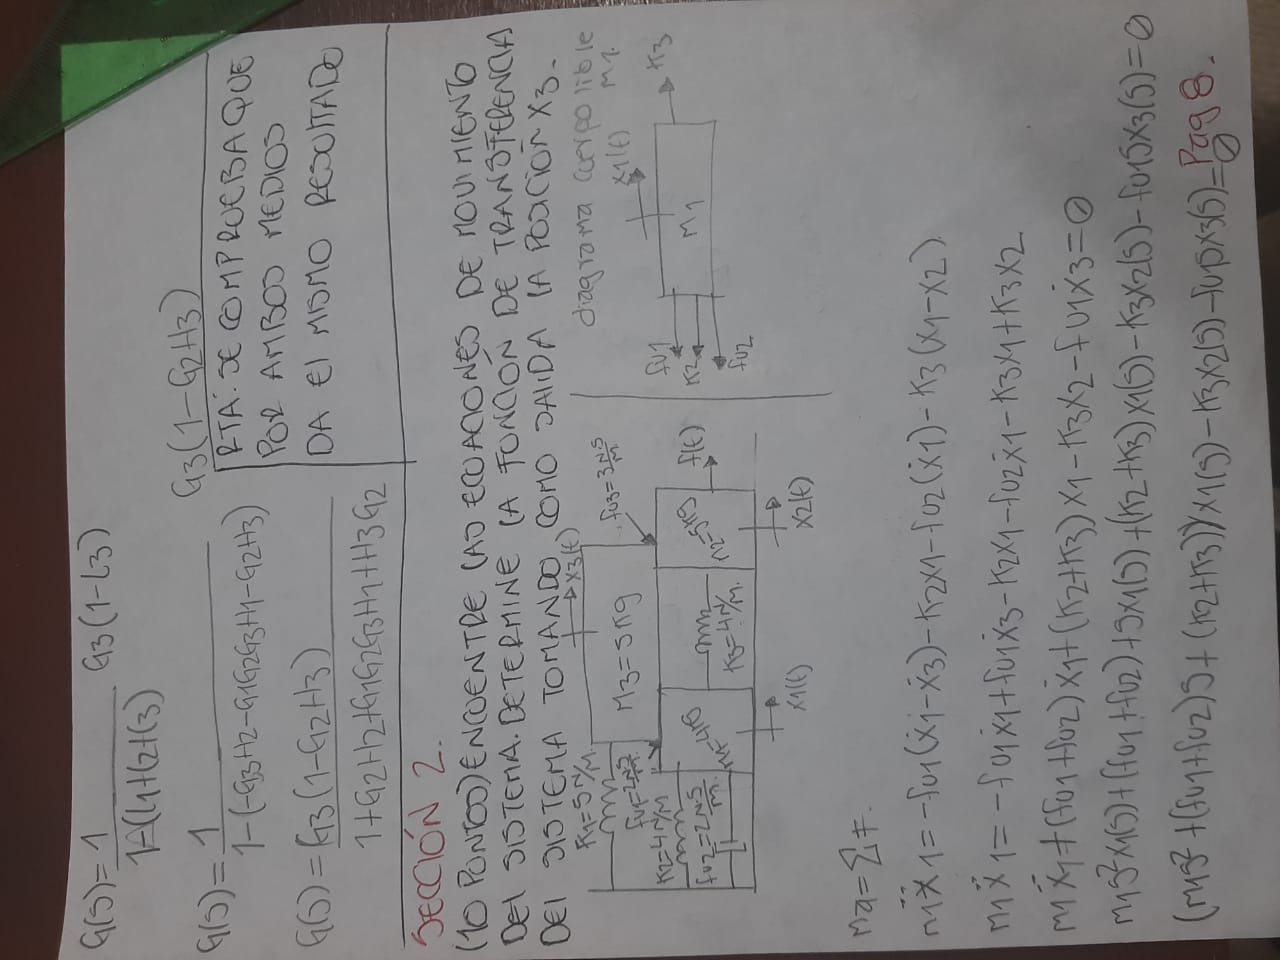 G(S)=1/(1-(L1+L2+L3)) G3(1-L3)
G(S)=1/(1-(-G3H2-G1G2G3H1-G2H3)) G3(1-G2H3)
G(S)=G3(1-G2H3)/(1+G2H2+G1G2G3H1+H3G2)
RTA: SE COMPRUEBA QUE
POR AMBOS MEDIOS
DA El MISMO RESULTADO
SECCIÓN 2.
(10 PUNTOS) ENCUENTRE LAS ECUACIONES DE MOVIMIENTO
DEl SISTEMA. DETERMINE LA FUNCIÓN DE TRANSFERENCIA
DEl SISTEMA TOMANDO COMO SALIDA LA POSICIÓN X3.
K1=5N/M
X3(t)
fv1=2N.S/M.
M3=5Kg
fv3=3N.S/M.
K2=4N/M
fv2=2N.S/M.
M1=4KG
K3=4N/M.
M2=5Kg
f(t)
X1(t)
X2(t)
diagrama cuerpo libre
M1.
X1(t)
fv1
K2
fv2
M1
K3
Ma=∑F.
m1ẍ1=-fv1(ẋ1-ẋ3)-K2x1-fv2(ẋ1)-K3(x1-x2)
m1ẍ1=-fv1ẋ1+fv1ẋ3-K2x1-fv2ẋ1-K3x1+K3x2
m1ẍ1+(fv1+fv2)ẋ1+(K2+K3)x1-K3x2-fv1ẋ3=0
m1S²x1(S)+(fv1+fv2)+Sx1(S)+(K2+K3)x1(S)-K3x2(S)-fv1Sx3(S)=0
(m1S²+(fv1+fv2)S+(K2+K3))x1(S)-K3x2(S)-fv1Sx3(S)=0
Pag 8.